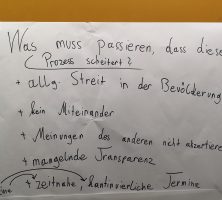 Was muss passieren, dass diese
Prozess scheitert?
+ allg. Streit in der Bevölkerung
+ kein Miteinander
+ Meinungen des anderen nicht akzertieren
+ mangelnde Transparenz
+ zeitnahe, kontinuierliche Termine